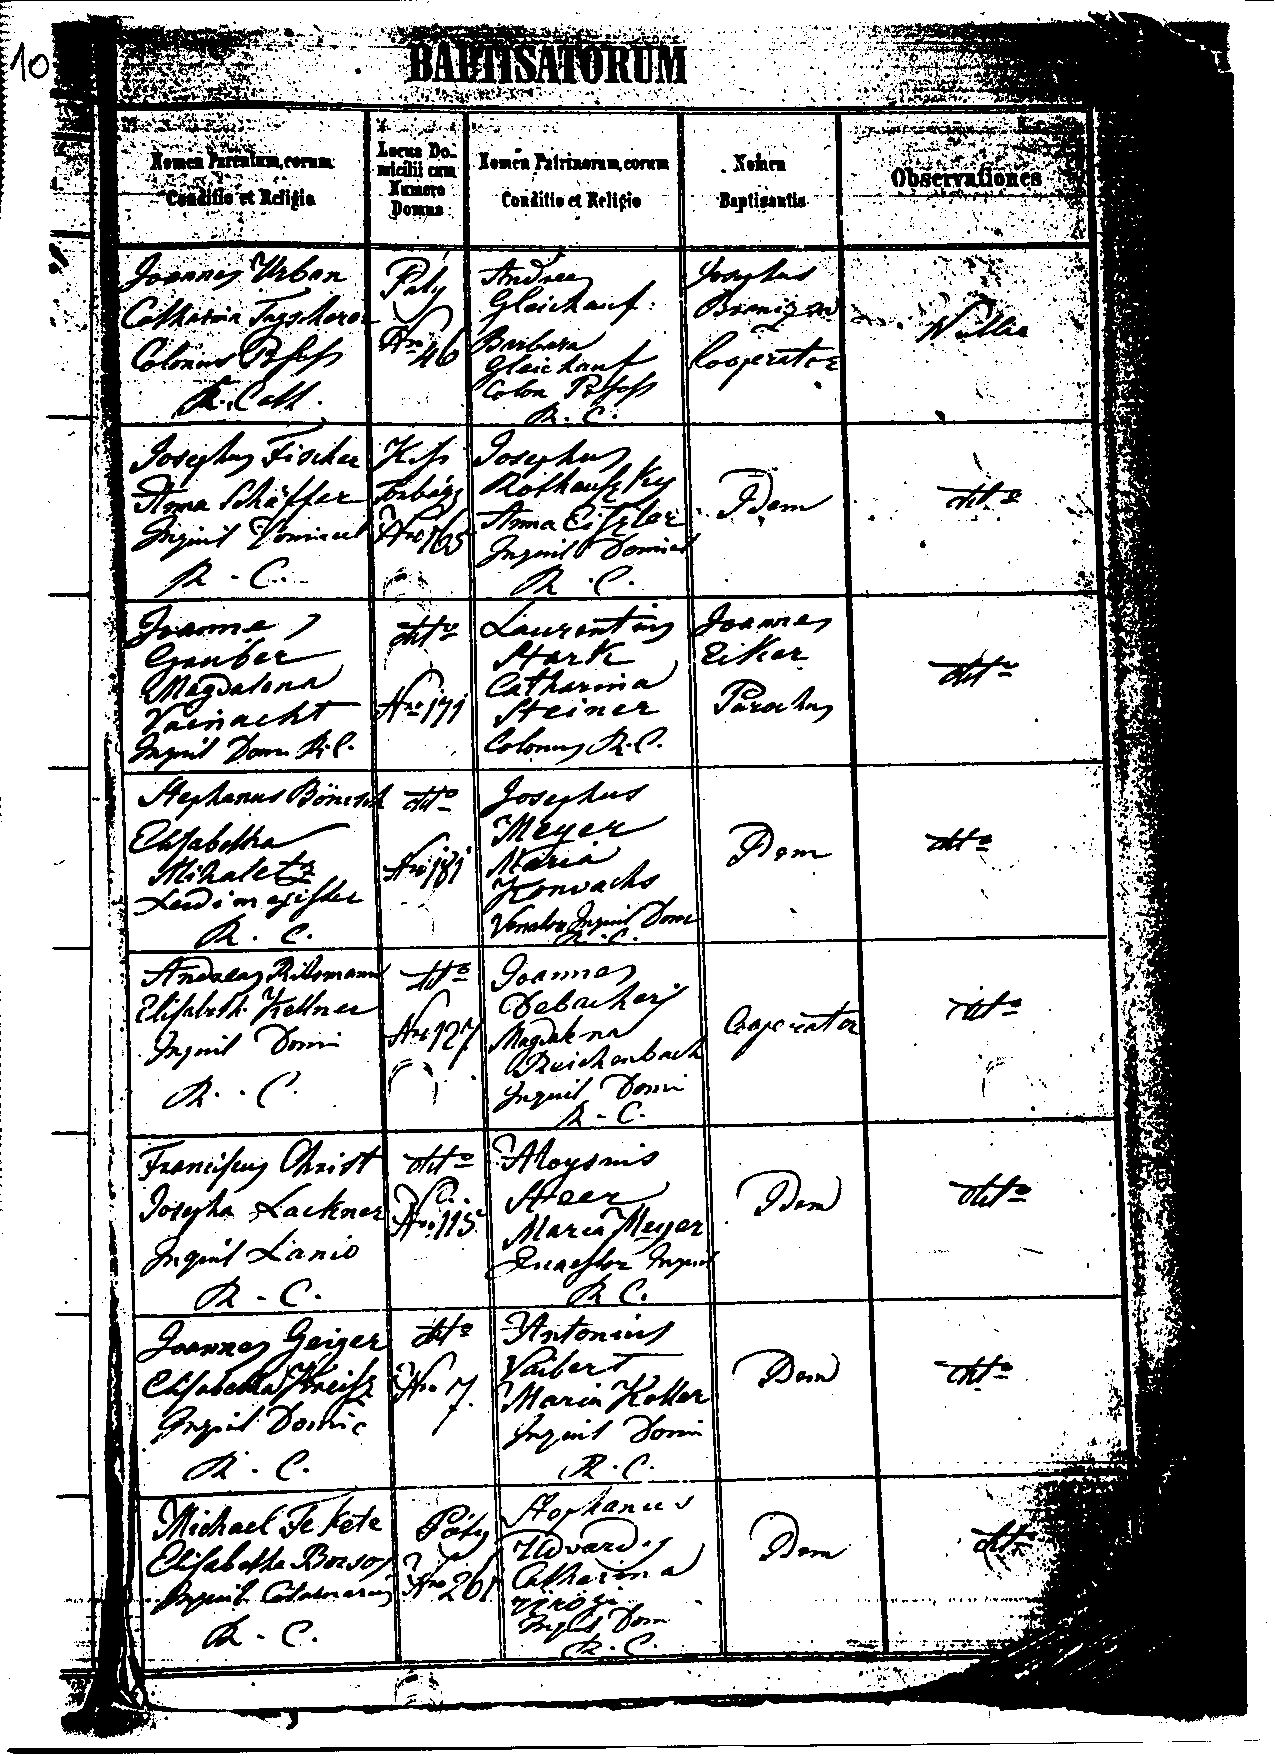 10
BAPTISATORUM
Nomen Parentum, eorum
Conditio et Religio
Locus Do-
micilii cum
Numero
Domus
Nomen Patrinorum, eorum
Conditio et Religio
Nomen
Baptisantis
Observationes
Joannes Urban
Catharina
Colonus
R. Cath.
Páty
Nro 46
Andreas
Gleichauf
Barbara
Gleichauf
Colon
R. C.
Josephus
Cooperator
Nulla
Josephus Fischer
Anna Schäffer
Inquil
R. C.
Kis
Torbágy
Nro 165
Josephus
Anna
Inquil
R. C.
Idem
dtto
Joannes
Gauber
Magdalena
Inquil Dom R. C.
dtto
Nro 171
Laurentius
Stark
Catharina
Steiner
Colonus R. C.
Joannes
Eiker
Parochus
dtto
Stephanus
Elisabetha
Ludimagister
R. C.
dtto
Nro 181
Josephus
Meyer
Maria
Inquil Dom
R. C.
Idem
dtto
Andreas
Elisabeth Kellner
Inquil Domi
R. C.
dtto
Nro 127
Joannes
Magdalena
Reichenbach
Inquil Domi
R. C.
Cooperator
dtto
Franciscus Christ
Josepha Lackner
Inquil Lanio
R. C.
dtto
Nro 115
Aloysius
Maria Meyer
Quaestor Inquil
R. C.
Idem
dtto
Joannes Geiger
Elisabetha
Inquil Domic
R. C.
dtto
Nro 7
Antonius
Vaibert
Maria Koller
Inquil Domi
R. C.
Idem
dtto
Michael Fekete
Elisabetha
Inquil
R. C.
Páty
Nro 261
Stephanus
Udvardy
Catharina
Inquil Dom
R. C.
Idem
dtto